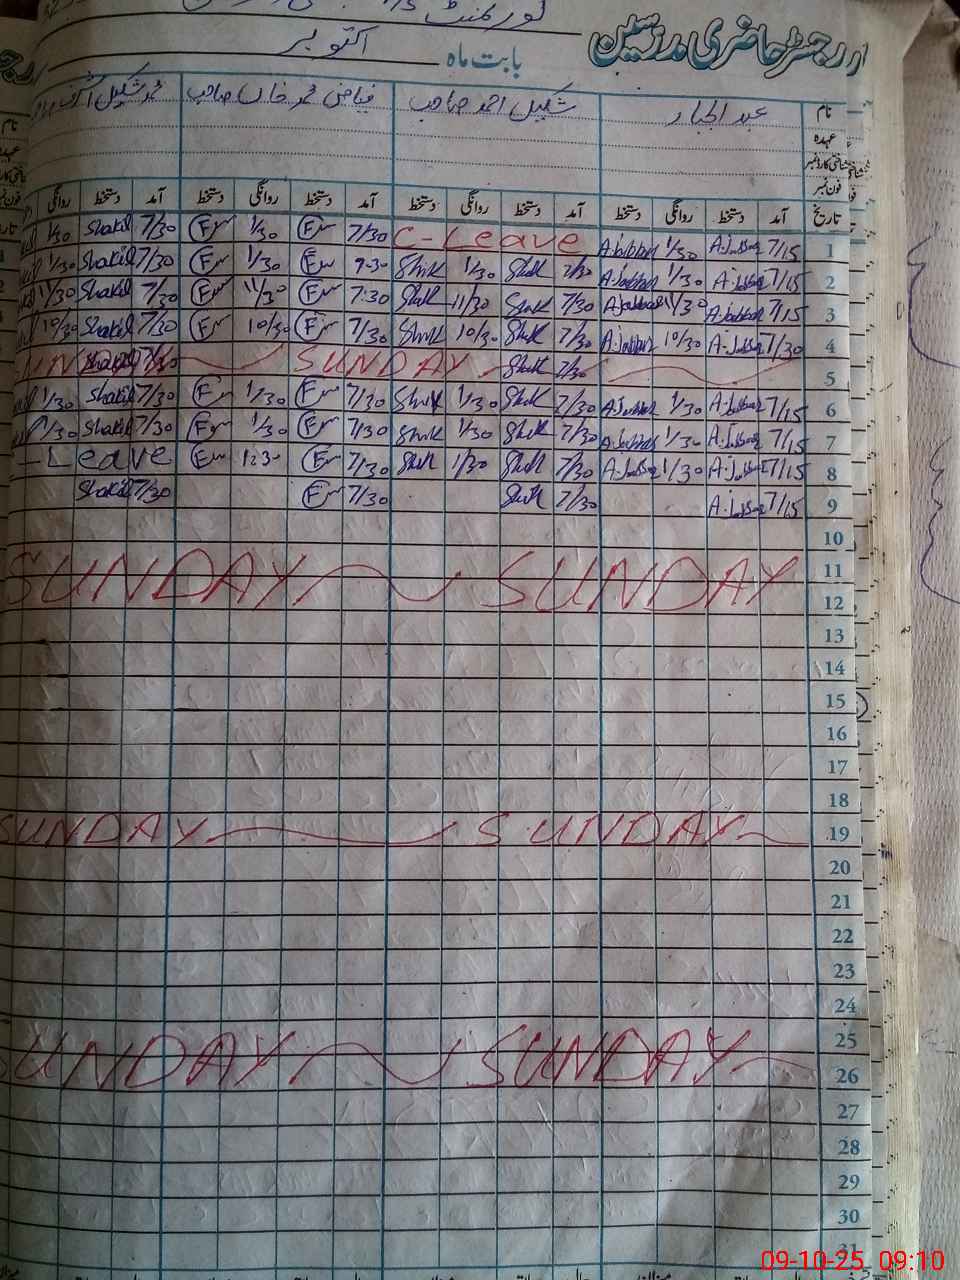 رجسٹر حاضری مدرسین
بابت ماہ اکتوبر
نام عبد الجبار شکیل احمد صاحب فیاض محمد خان صاحب محمد شکیل
عہدہ
فون نمبر
تاریخ آمد دستخط روانگی دستخط آمد دستخط روانگی دستخط آمد دستخط روانگی دستخط آمد دستخط روانگی
1 7/15 A.Jabbar 1/30 A.Jabbar C-Leave 7/30 F 1/30 F 7/30 Shakil 1/30
2 7/15 A.Jabbar 1/30 A.Jabbar 7/30 Shkl 1/30 Shkl 9-30 F 1/30 F 7/30 Shakil 1/30
3 7/15 A.Jabbar 11/30 A.Jabbar 7/30 Shkl 11/30 Shkl 7:30 F 11/30 F 7/30 Shakil 11/30
4 7/30 A.Jabbar 10/30 A.Jabbar 7/30 Shkl 10/30 Shkl 7/30 F 10/30 F 7/30 Shakil 10/30
5 7/30 Shkl SUNDAY 7/30 Shakil SUN
6 7/15 A.Jabbar 1/30 A.Jabbar 7/30 Shkl 1/30 Shkl 7/30 F 1/30 F 7/30 Shakil 1/30
7 7/15 A.Jabbar 1/30 A.Jabbar 7/30 Shkl 1/30 Shkl 7/30 F 1/30 F 7/30 Shakil 1/30
8 7/15 A.Jabbar 1/30 A.Jabbar 7/30 Shkl 1/30 Shkl 7/30 F 1230 F -Leave
9 7/15 A.Jabbar 7/30 Shkl 7/30 F 7/30 Shakil
10
11
12 SUNDAY SUNDAY
13
14
15
16
17
18
19 SUNDAY SUNDAY
20
21
22
23
24
25
26 SUNDAY SUNDAY
27
28
29
30
31
09-10-25 09:10